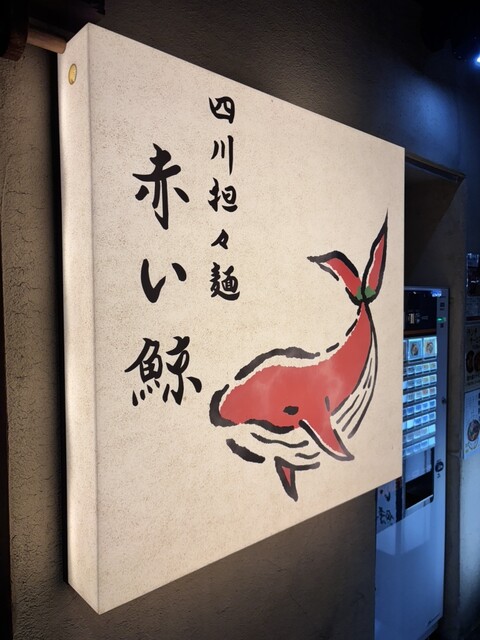 四川担々麺
赤い鯨